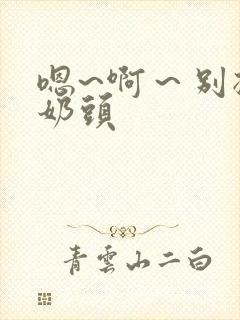 嗯~啊~别
奶頭
青雲山二白